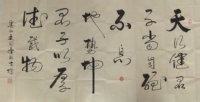 天行健君
子当自强
不息
地势坤
君子以厚
德载物